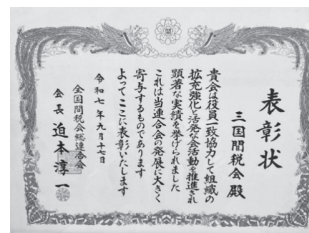 表彰状
三国間税会殿
貴会は役員一致協力して組織の
拡充強化と活発な会活動を推進され
顕著な実績を挙げられました
これは当連合会の発展に大きく
寄与するものであります
よってここに表彰いたします
令和七年九月十七日
全国間税会総連合会
会長 迫本淳一